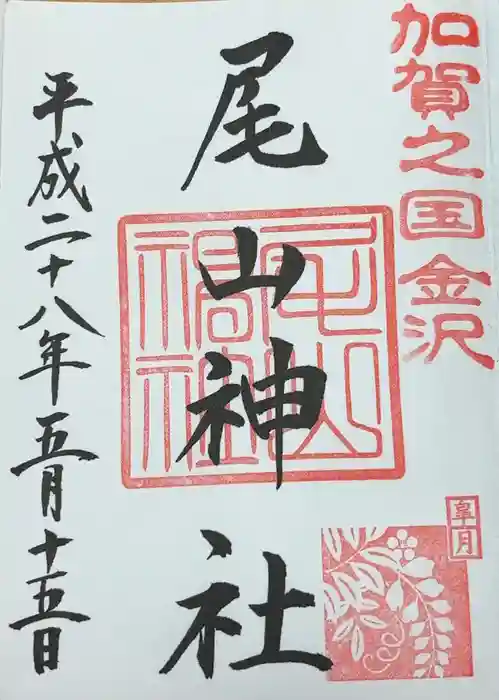 加賀之国金沢
皐月
尾山神社
尾山神社
平成二十八年五月十五日